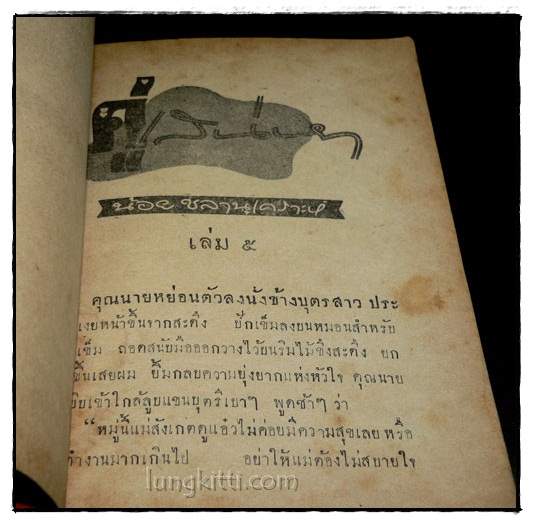 คู่เสน่หา
น้อย ชลานุเคราะห์
เล่ม ๕
คุณนายหย่อนตัวลงนั่งข้างบุตรสาว ประ
เงยหน้าขึ้นจากสะดึง ปักเข็มลงบนหมอนสำหรับ
เข็ม ถอดสนับมือออกวางไว้บนริมไม้ขึงสะดึง ยก
ขึ้นเสยผม ยิ้มกลบความยุ่งยากแห่งหัวใจ คุณนาย
ขยับเข้าใกล้ลูบแขนบุตรีเบาๆ พูดช้าๆ ว่า
“หมู่นี้แม่สังเกตดูแอ๋วไม่ค่อยมีความสุขเลย หรือ
ทำงานมากเกินไป อย่าให้แม่ต้องไม่สบายใจ
lungkitti.com